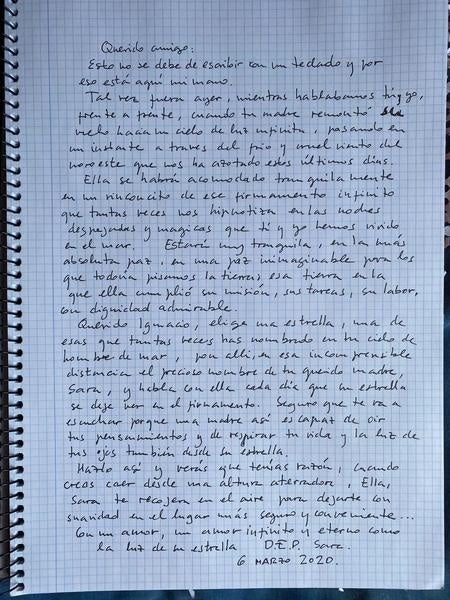 Querido amigo:
Esto no se debe de escribir con un teclado y por
eso está aquí mi mano.
Tal vez fuera ayer, mientras hablabamos tú y yo,
frente a frente, cuando tu madre remontó su
vuelo hacia un cielo de luz infinita, pasando en
un instante a través del frio y cruel viento del
noroeste que nos ha azotado estos últimos dias.
Ella se habrá acomodado tranquilamente
en un rinconcito de ese firmamento infinito
que tantas veces nos hipnotiza en las noches
despejadas y magicas que tú y yo hemos vivido
en el mar. Estará muy tranquila, en la más
absoluta paz, en una paz inimaginable para los
que todavia pisamos la tierra; esa tierra en la
que ella cumplió su misión, sus tareas, su labor,
con dignidad admirable.
Querido Ignacio, elige una estrella, una de
esas que tantas veces has nombrado en tu cielo de
hombre de mar, pon alli, en esa incomprensible
distancia el precioso nombre de tu querida madre,
Sara, y habla con ella cada dia que su estrella
se deje ver en el firmamento. Seguro que te va a
escuchar porque una madre asi es capaz de oir
tus pensamientos y de respirar tu vida y la luz de
tus ojos también desde su estrella.
Hazlo asi y verás que tenias razón, cuando
creas caer desde una altura aterradora, Ella,
Sara te recojera en el aire para dejarte con
suavidad en el lugar más seguro y conveniente...
Con un amor, un amor infinito y eterno como
la luz de su estrella D.E.P. Sara.
6 MARZO 2020.